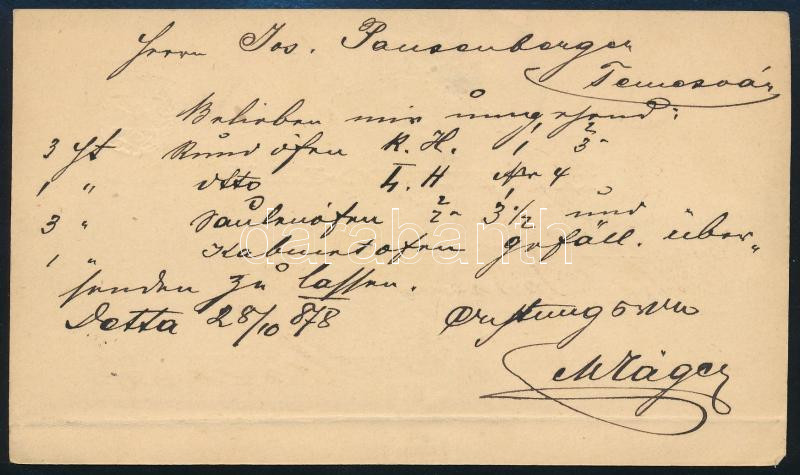 Herrn Jos. Pausenberger
Temesvár
Belieben mir umgehend:
3 St Rundöfen R. H. 1, 2/3
1 " dtto L. H. No 4
3 " Säulenöfen 2/2 3 1/2 und
1 " Kabinetofen gefäll. über„
senden zu lassen.
Detta 28/10 878
Achtungsvoll
darabanth